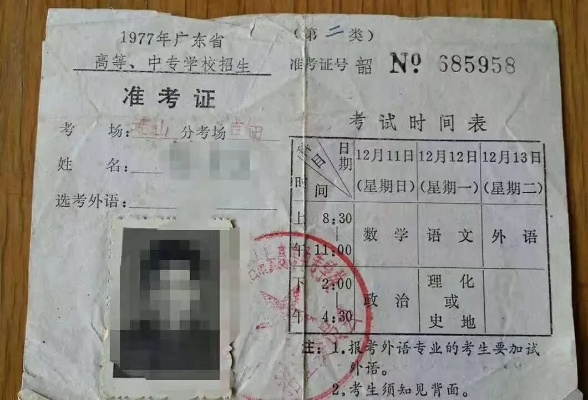 1977年广东省
高等、中专学校招生
准考证
考 场： 分考场
姓 名：
选考外语：
（第二类）
准考证号 韶 № 685958
考试时间表
日期 时间 12月11日（星期日） 12月12日（星期一） 12月13日（星期二）
上午 8:30—11:00 数学 语文 外语
下午 2:00—4:30 政治 理化或史地
注：1.报考外语专业的考生要加试
外语。
2.考生须知见背面。